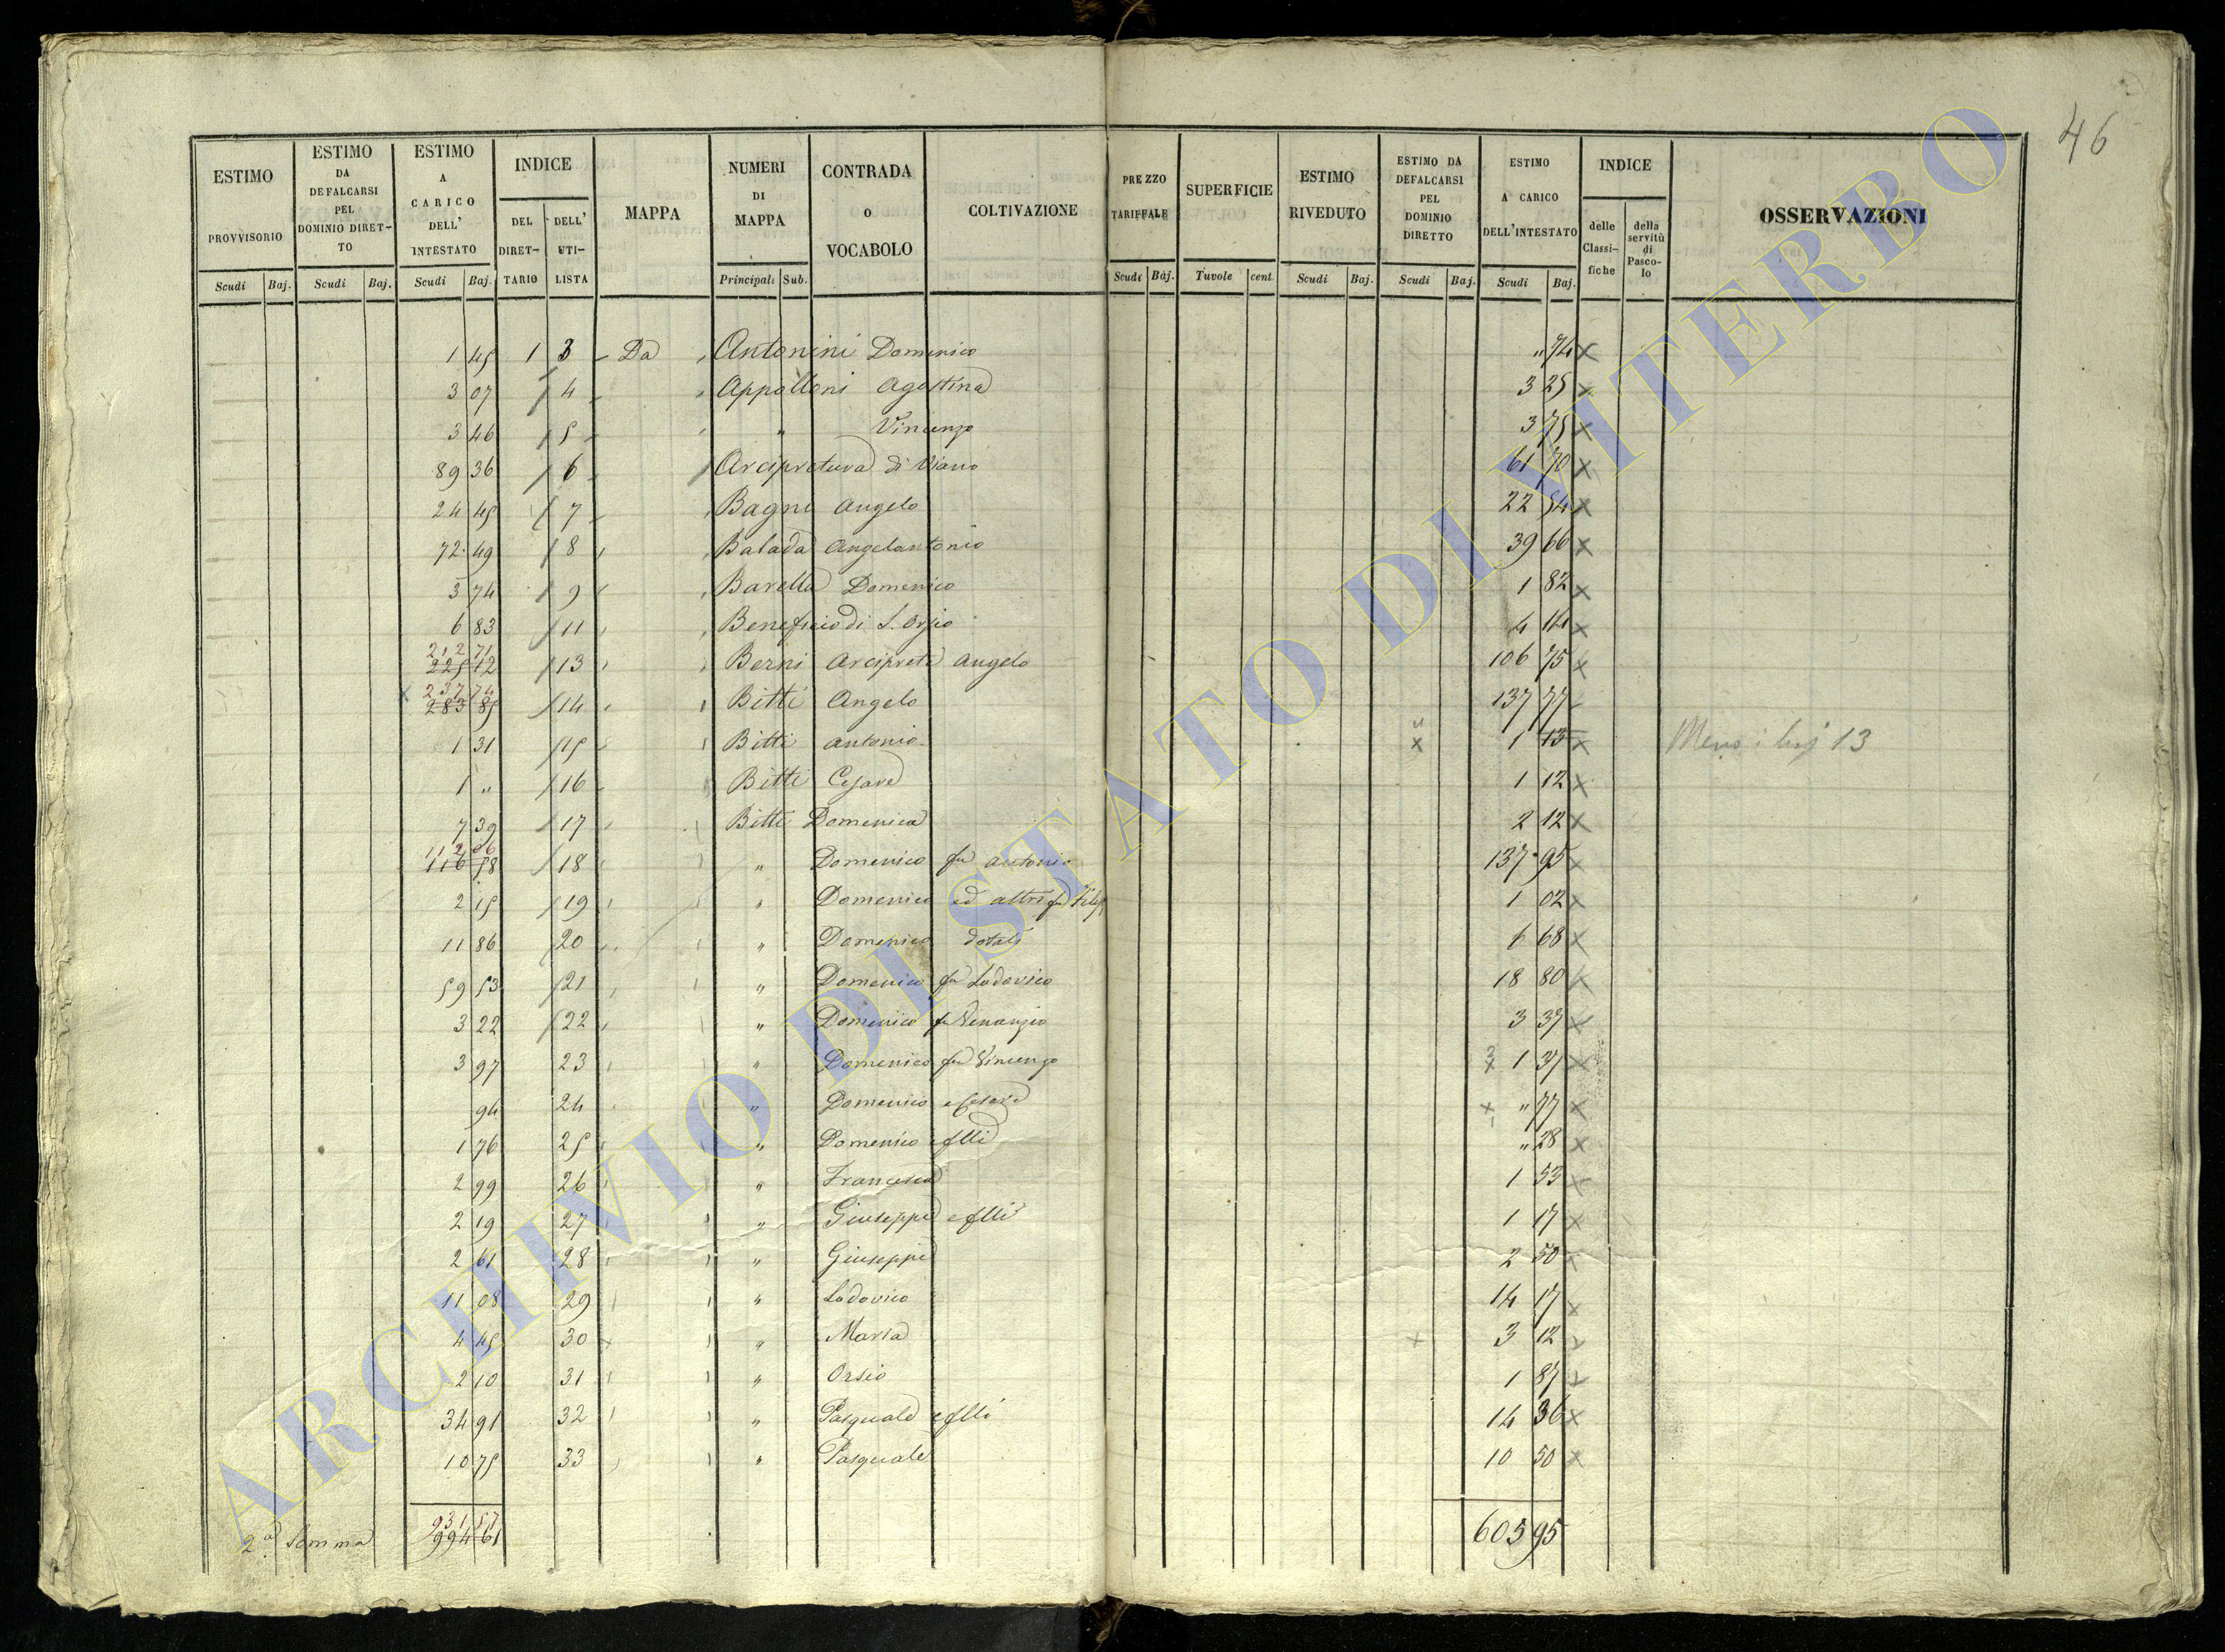 46
ESTIMO PROVVISORIO
ESTIMO DA DEFALCARSI PEL DOMINIO DIRET-TO
ESTIMO A CARICO DELL' INTESTATO
INDICE
DEL DIRET-TARIO
DELL' UTI-LISTA
MAPPA
NUMERI DI MAPPA
CONTRADA O VOCABOLO
COLTIVAZIONE
PREZZO TARIFFALE
SUPERFICIE
ESTIMO RIVEDUTO
ESTIMO DA DEFALCARSI PEL DOMINIO DIRETTO
ESTIMO A CARICO DELL'INTESTATO
INDICE
delle Classi-fiche
della servitù di Pasco-lo
OSSERVAZIONI
Scudi Baj. Scudi Baj. Scudi Baj. Principali Sub. Scudi Baj. Tavole cent. Scudi Baj. Scudi Baj. Scudi Baj.
1 45 1 3 Da Antonini Domenico " 74 x
3 07 4 Appolloni Agostina 3 25 x
3 46 5 " Vincenzo 3 75 x
89 36 6 Arcipretura di Viano 61 70 x
24 45 7 Bagni Angelo 22 54 x
72 49 8 Balada Angelantonio 39 66 x
3 74 9 Barella Domenico 1 82 x
6 83 11 Beneficio di S. Orsio 4 14 x
212 71
225 12 13 Berni Arciprete Angelo 106 75 x
x 237 74
283 85 14 Bitti Angelo 137 77
1 31 15 Bitti Antonio x 1 13 x Meno i baj 13
1 " 16 Bitti Cesare 1 12 x
7 39 17 Bitti Domenica 2 12 x
112 06
116 58 18 " Domenico fu Antonio 137 95 x
2 15 19 " Domenico ed altri fu 1 02 x
11 86 20 " Domenico dotali 6 68 x
59 53 21 " Domenico fu Lodovico 18 80 x
3 22 22 " Domenico fu Venanzio 3 37 x
3 97 23 " Domenico fu Vincenzo 1 37 x
94 24 " Domenico e Cesare x " 77 x
1 76 25 " Domenico e flli " 28 x
2 99 26 " Francesca 1 53 x
2 19 27 " Giuseppe e flli 1 17 x
2 61 28 " Giuseppe 2 50 x
11 08 29 " Lodovico 14 17 x
4 45 30 " Maria x 3 12 x
2 10 31 " Orsio 1 87 x
34 91 32 " Pasquale e flli 14 36 x
10 75 33 " Pasquale 10 50 x
931 57
2.a Somma 994 61 605 95
ARCHIVIO DI STATO DI VITERBO